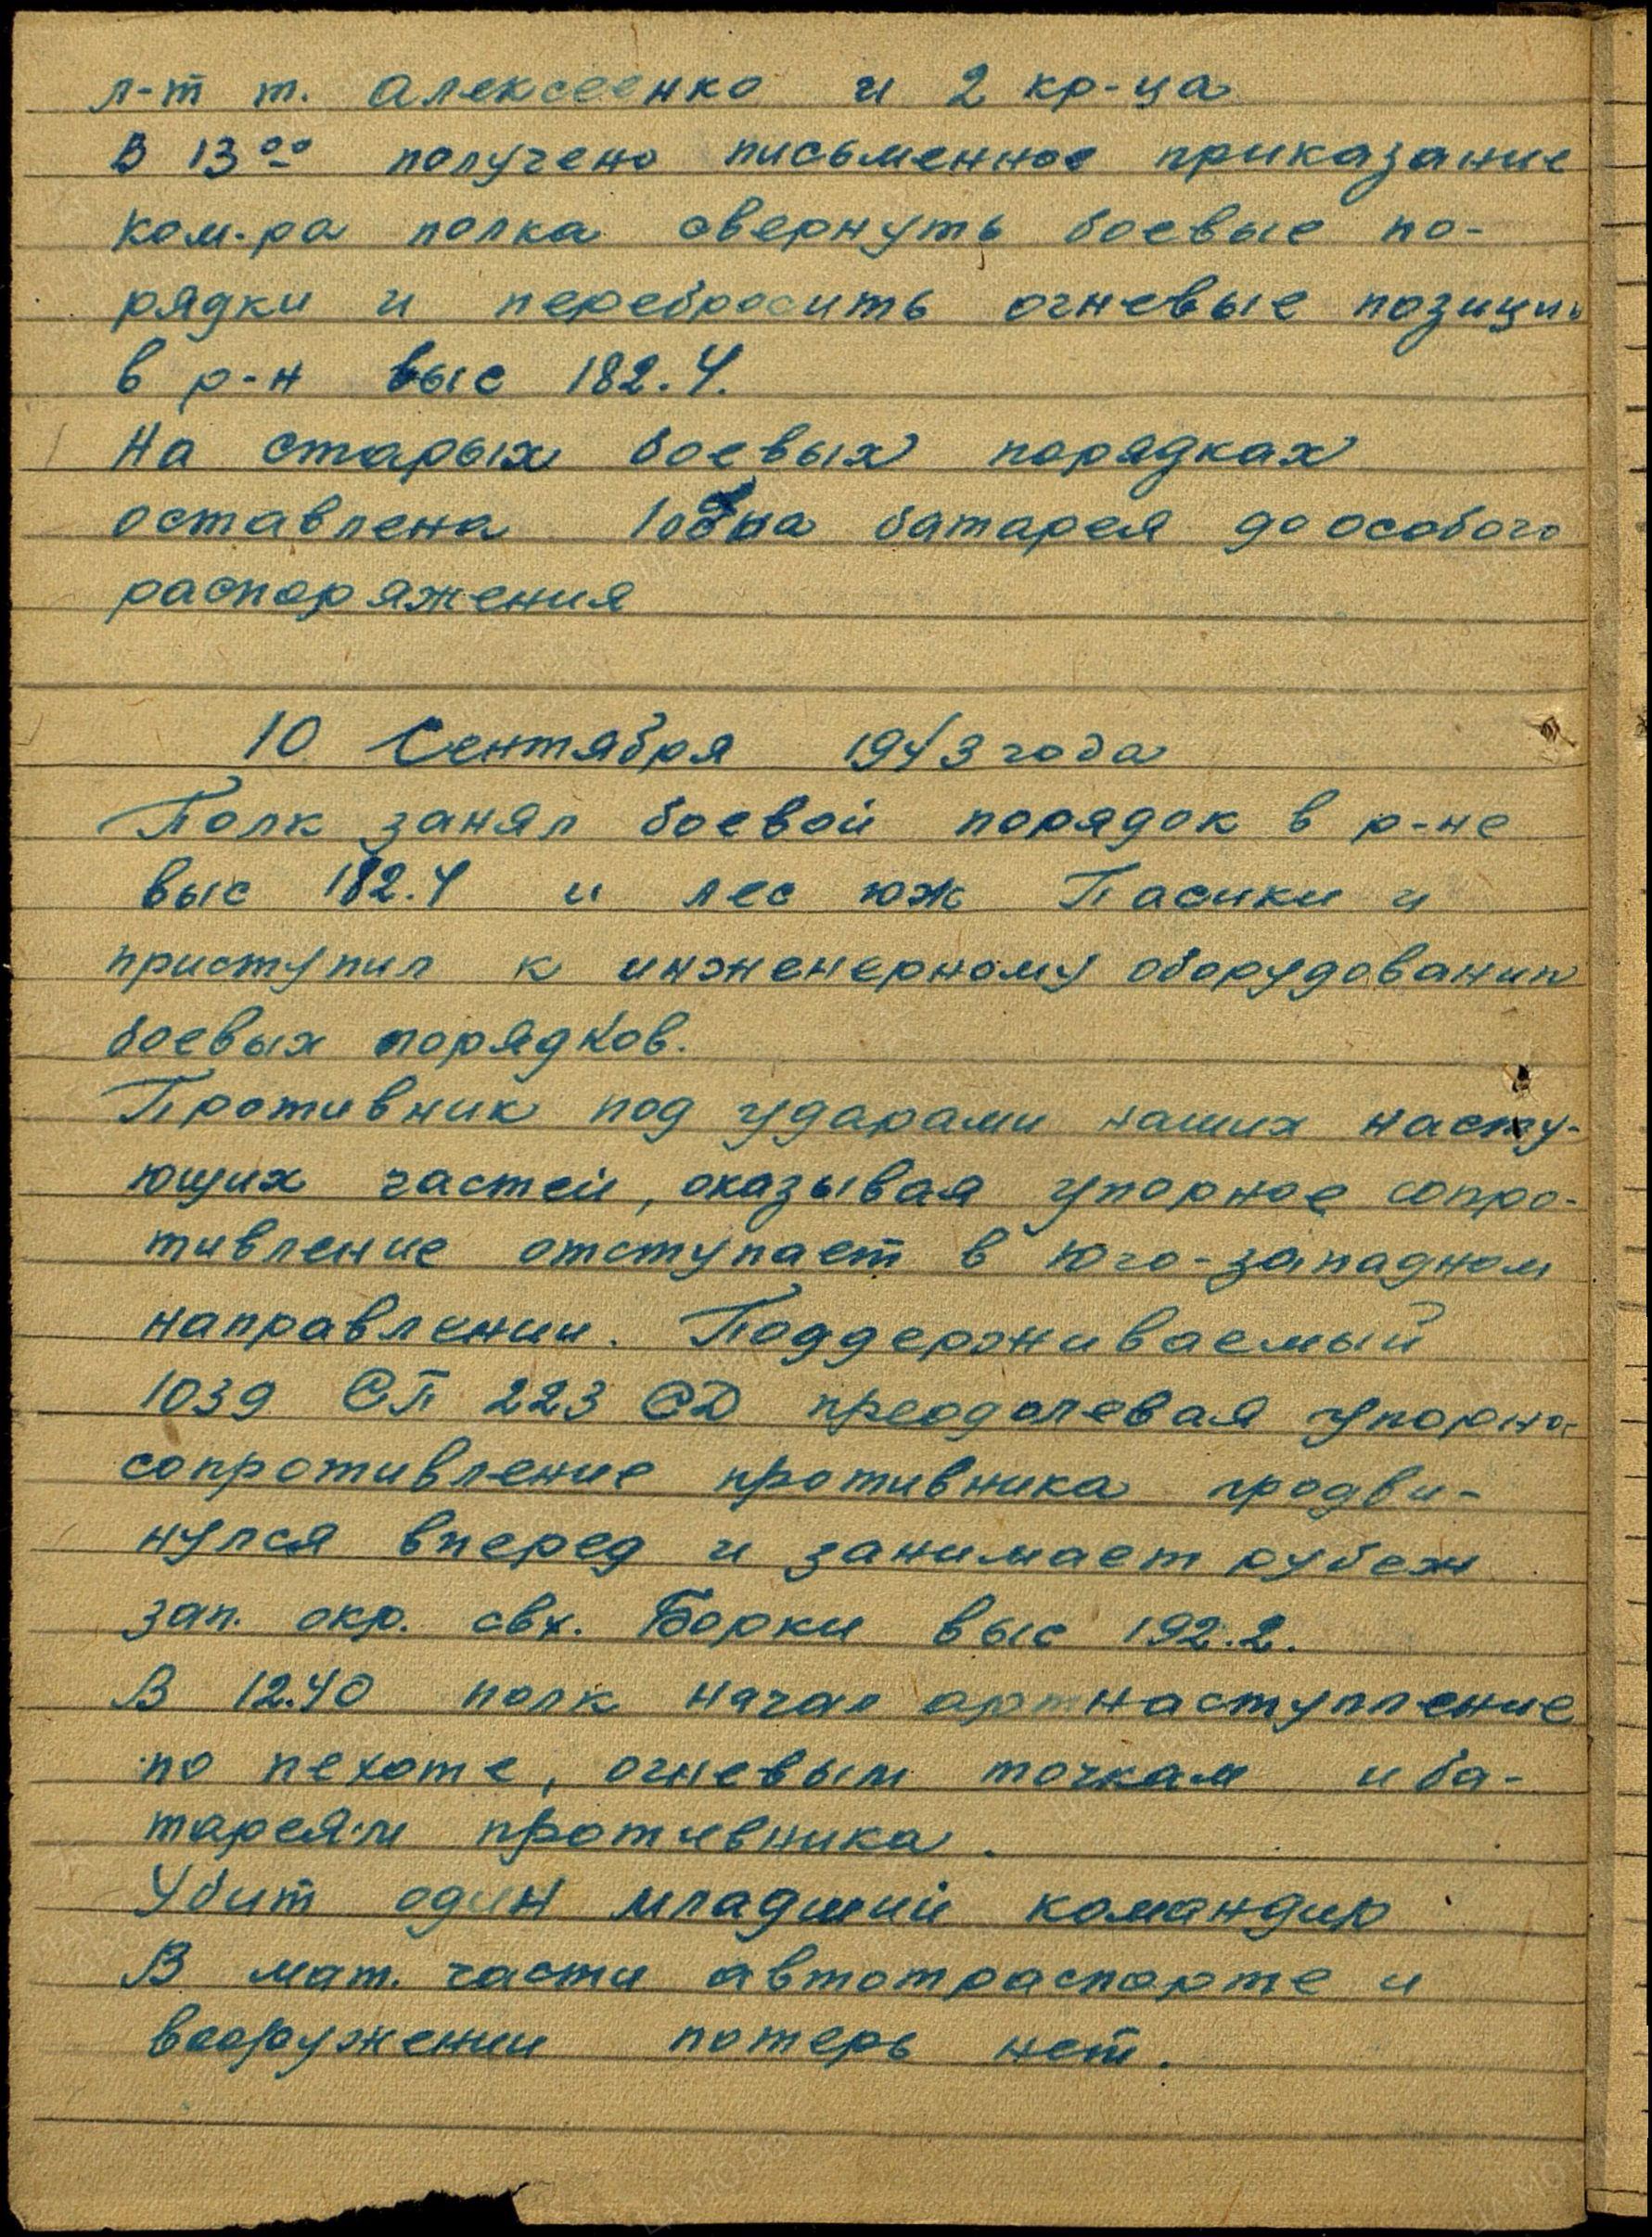 л-т т. Алексеенко и 2 кр-ца
В 13⁰⁰ получено письменное приказание
ком-ра полка свернуть боевые по-
рядки и перебросить огневые позиции
в р-н выс 182.4.
На старых боевых порядках
оставлена батарея до особого
распоряжения
10 Сентября 1943 года
Полк занял боевой порядок в р-не
выс 182.4 и лес юж Пасики и
приступил к инженерному оборудованию
боевых порядков.
Противник под ударами наших насту-
ющих частей, оказывая упорное сопро-
тивление отступает в юго-западном
направлении. Поддерживаемый
1039 СП 223 СД преодолевая упорное
сопротивление противника продви-
нулся вперед и занимает рубеж
зап. окр. свх. Борки выс 192.2.
В 12.40 полк начал артнаступление
по пехоте, огневым точкам и ба-
тареям противника.
Убит один младший командир
В мат. части автотраспорте и
вооружении потерь нет.